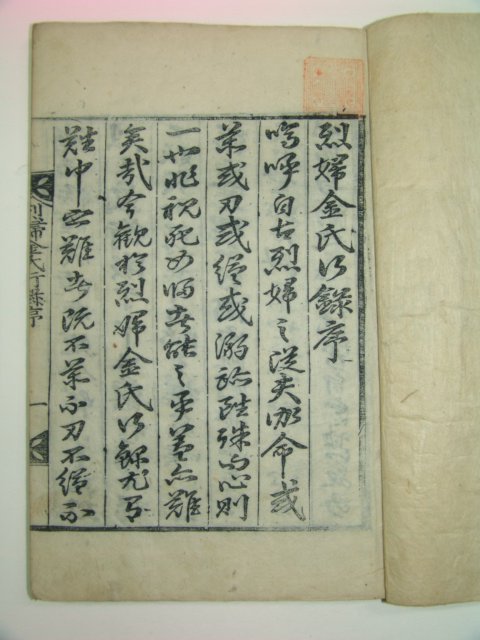 烈婦金氏行錄序
嗚呼自古烈婦之從夫命或
藥或刀或經或溺跡雖殊而心則
一也非視死如歸者能之乎盖亦難
矣哉今觀於烈婦金氏行錄尤有
難中之難者既不藥不刀不經不
烈婦金氏行錄序
一